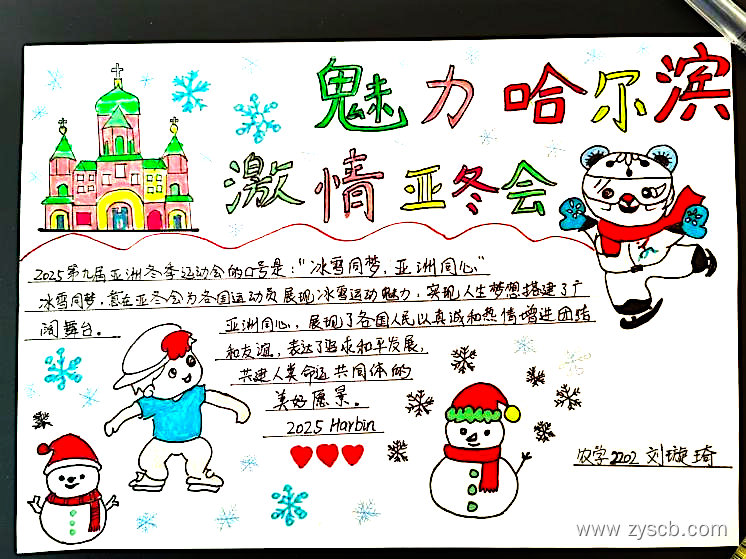 魅力哈尔滨
激情亚冬会
2025第九届亚洲冬季运动会的口号是："冰雪同梦，亚洲同心"
冰雪同梦，意在亚冬会为各国运动员展现冰雪运动魅力，实现人生梦想搭建了广
阔舞台。
亚洲同心，展现了各国人民以真诚和热情增进团结
和友谊，表达了追求和平发展，
共建人类命运共同体的
美好愿景。
2025 Harbin
农学2202 刘璇琦
www.zyscb.com